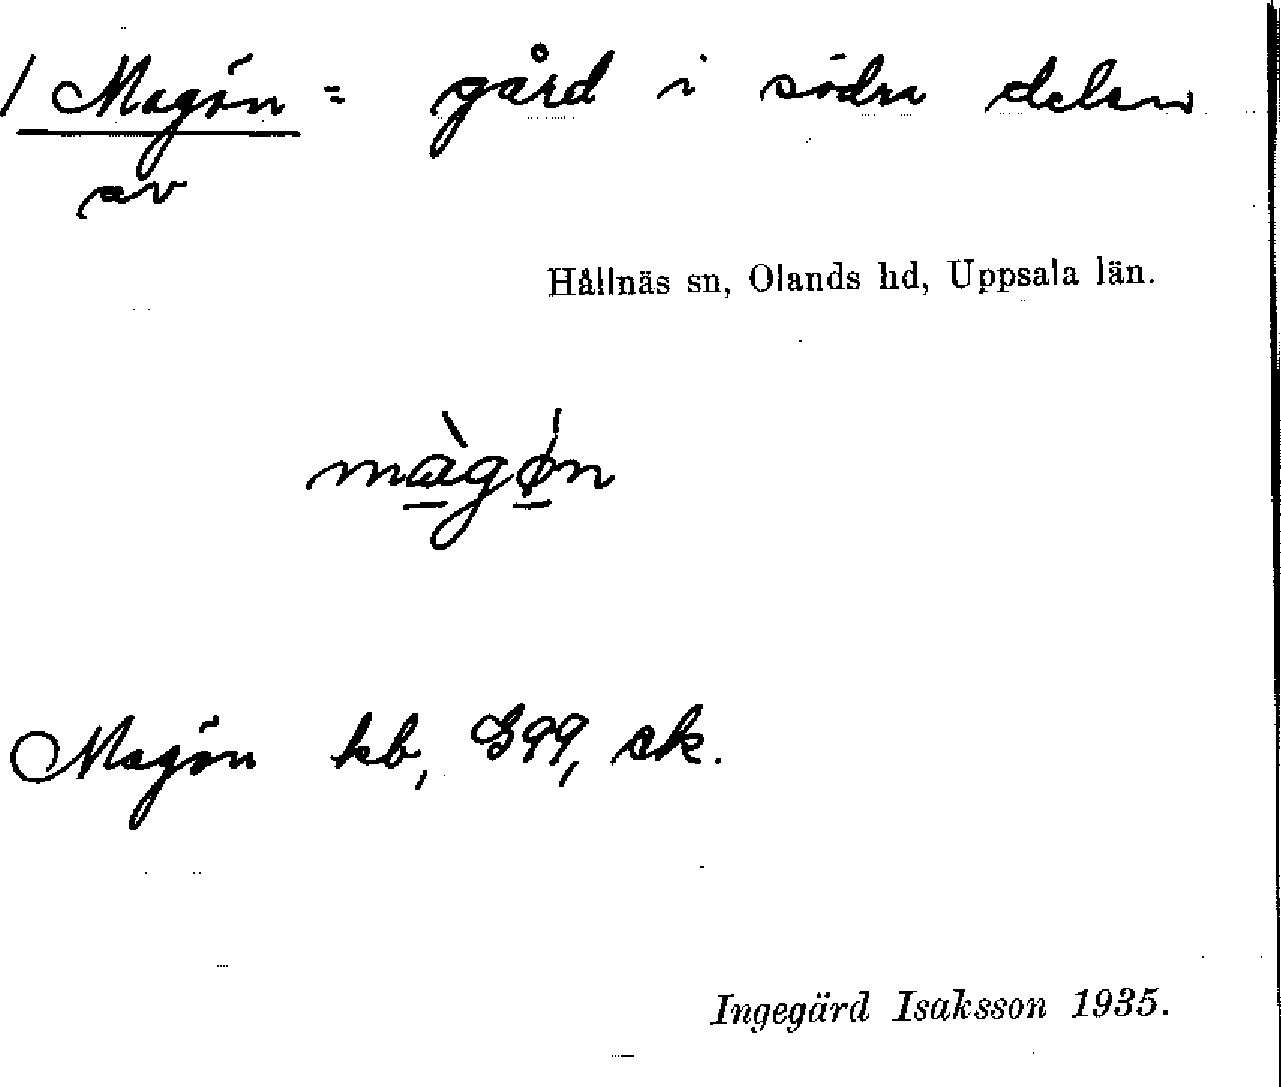 / Magön = gård i södra delen
av
Hållnäs sn, Olands hd, Uppsala län.
màgø̀n
Magön kb, G99, sk.
Ingegärd Isaksson 1935.